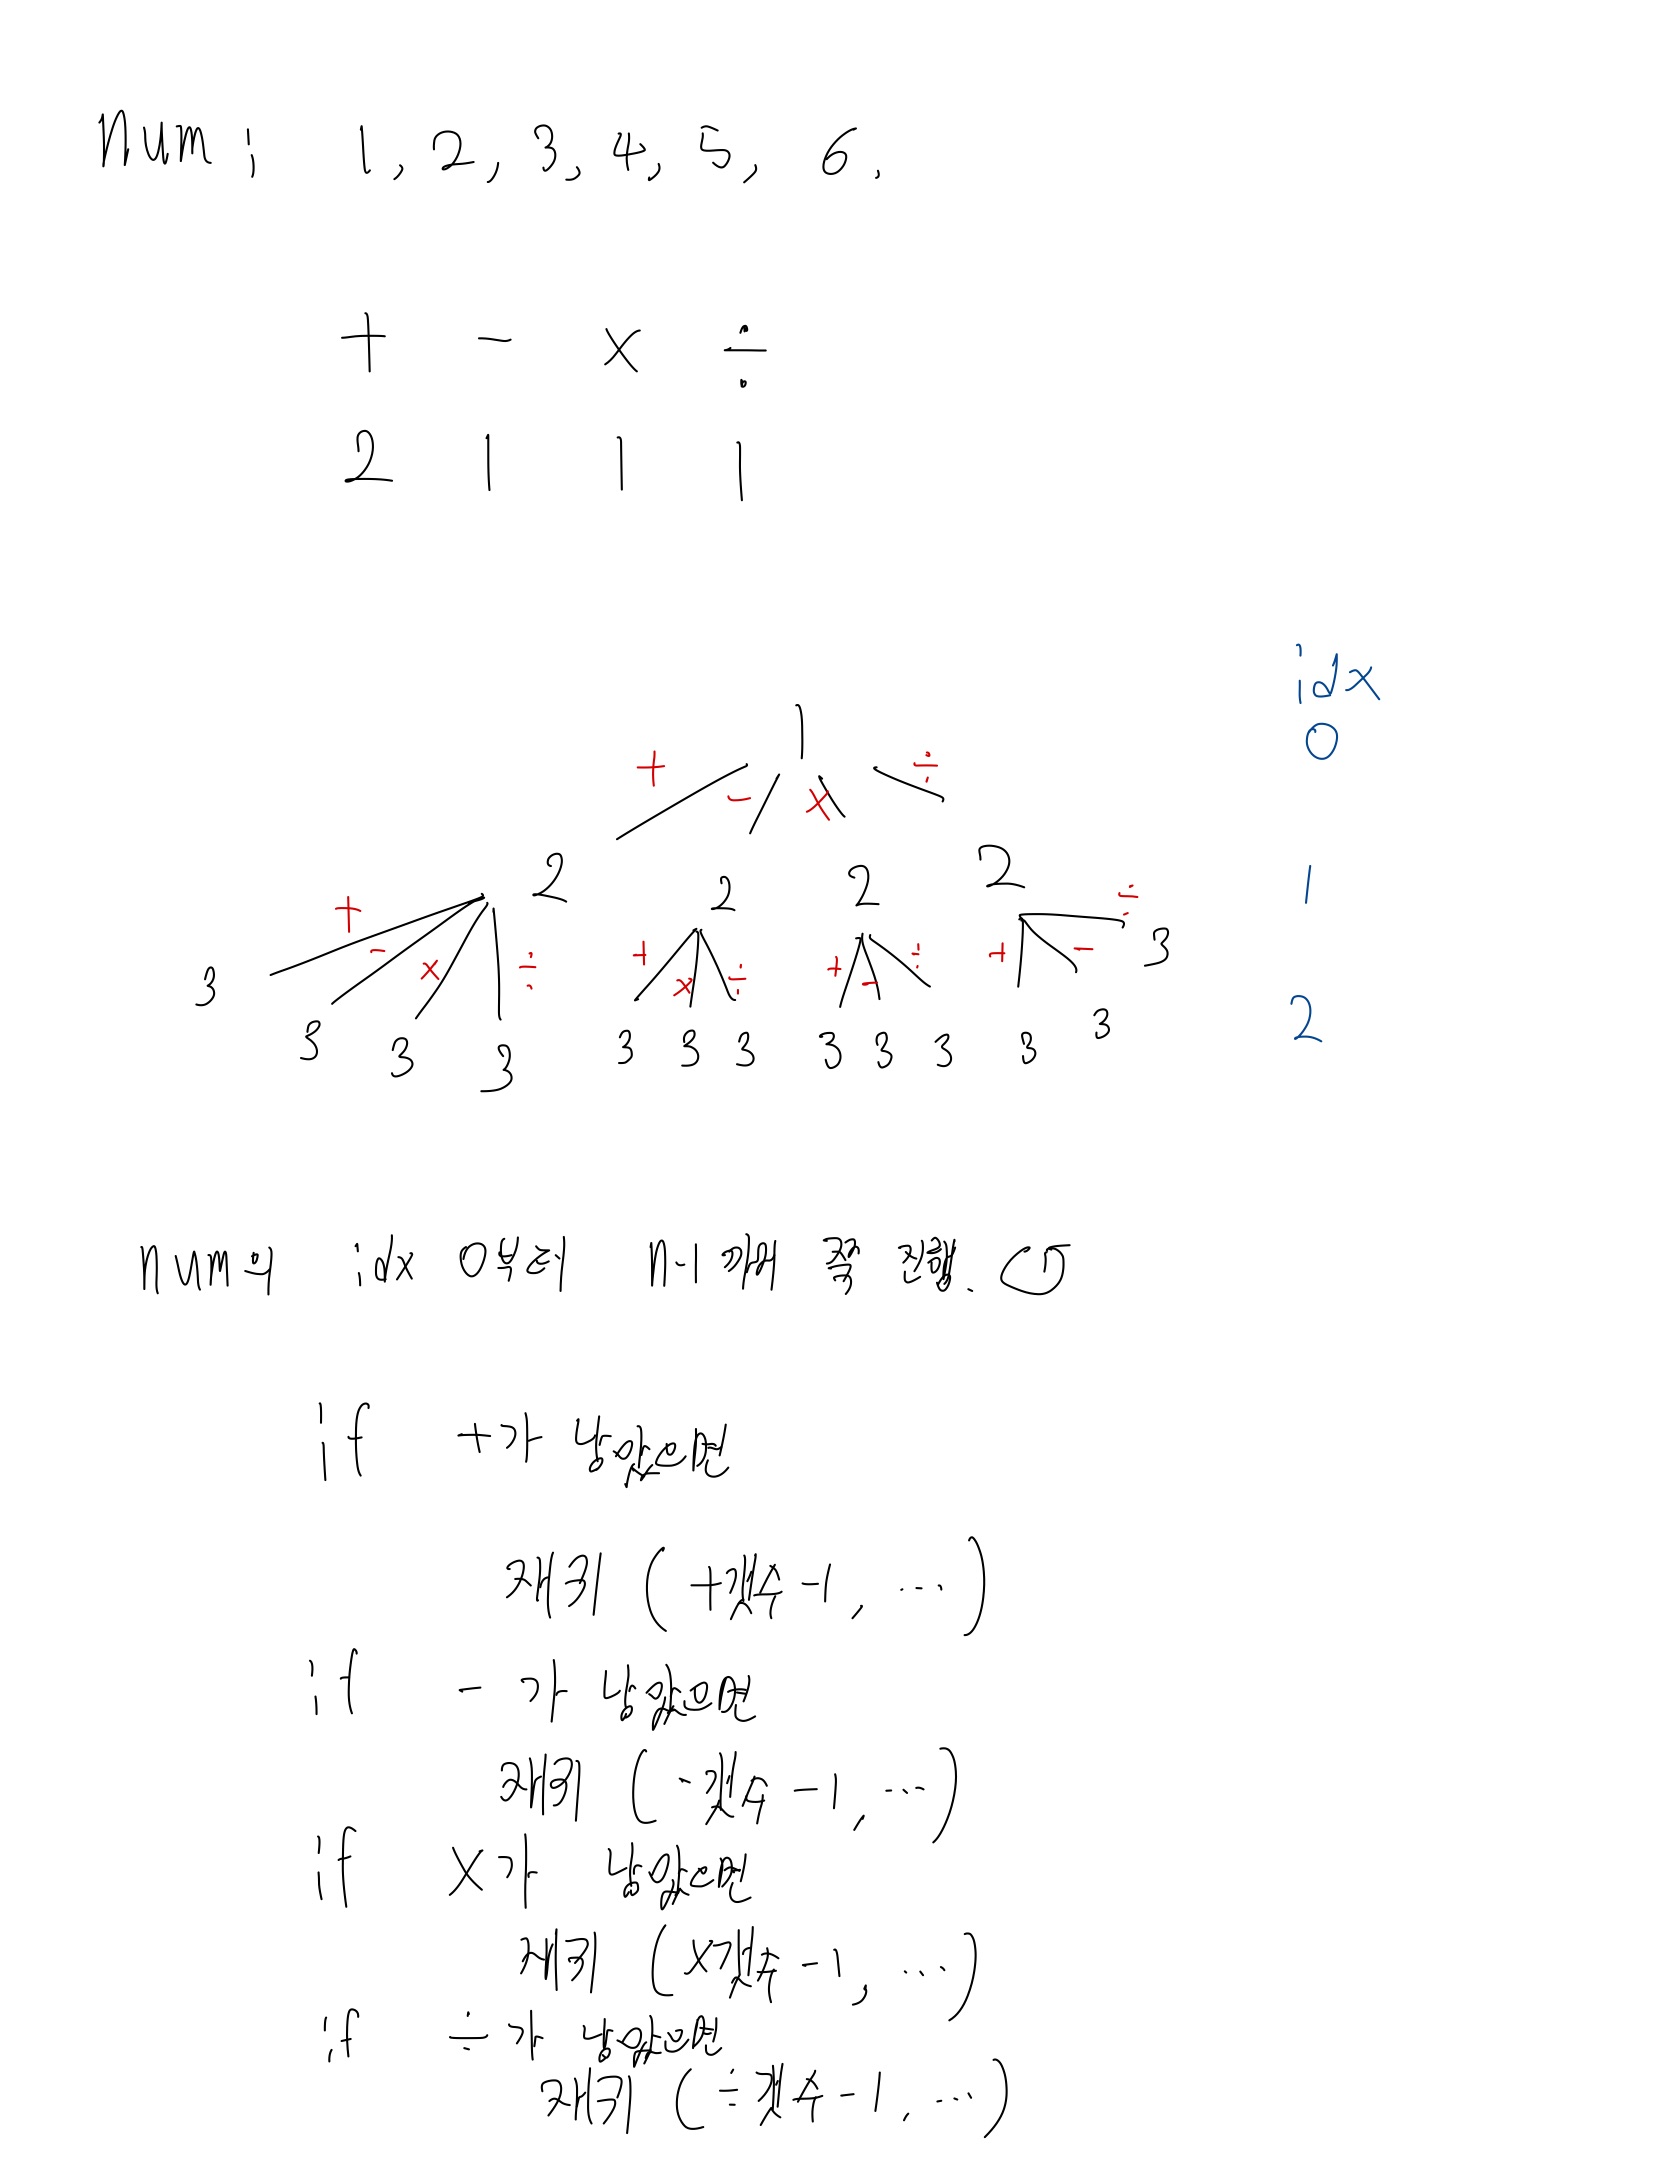 num : 1, 2, 3, 4, 5, 6.
+ - x ÷
2 1 1 1
idx
1 0
+ - x ÷
2 2 2 2 1
+ - x ÷ + x ÷ + - ÷ + - ÷
3 3 3 3 3 3 3 3 3 3 3 3 3 2
num의 idx 0부터 n-1 까지 쭉 진행.
if +가 남았으면
재귀 (+갯수-1, ...)
if - 가 남았으면
재귀 (-갯수-1, ...)
if x가 남았으면
재귀 (x갯수-1, ...)
if ÷가 남았으면
재귀 (÷갯수-1, ...)